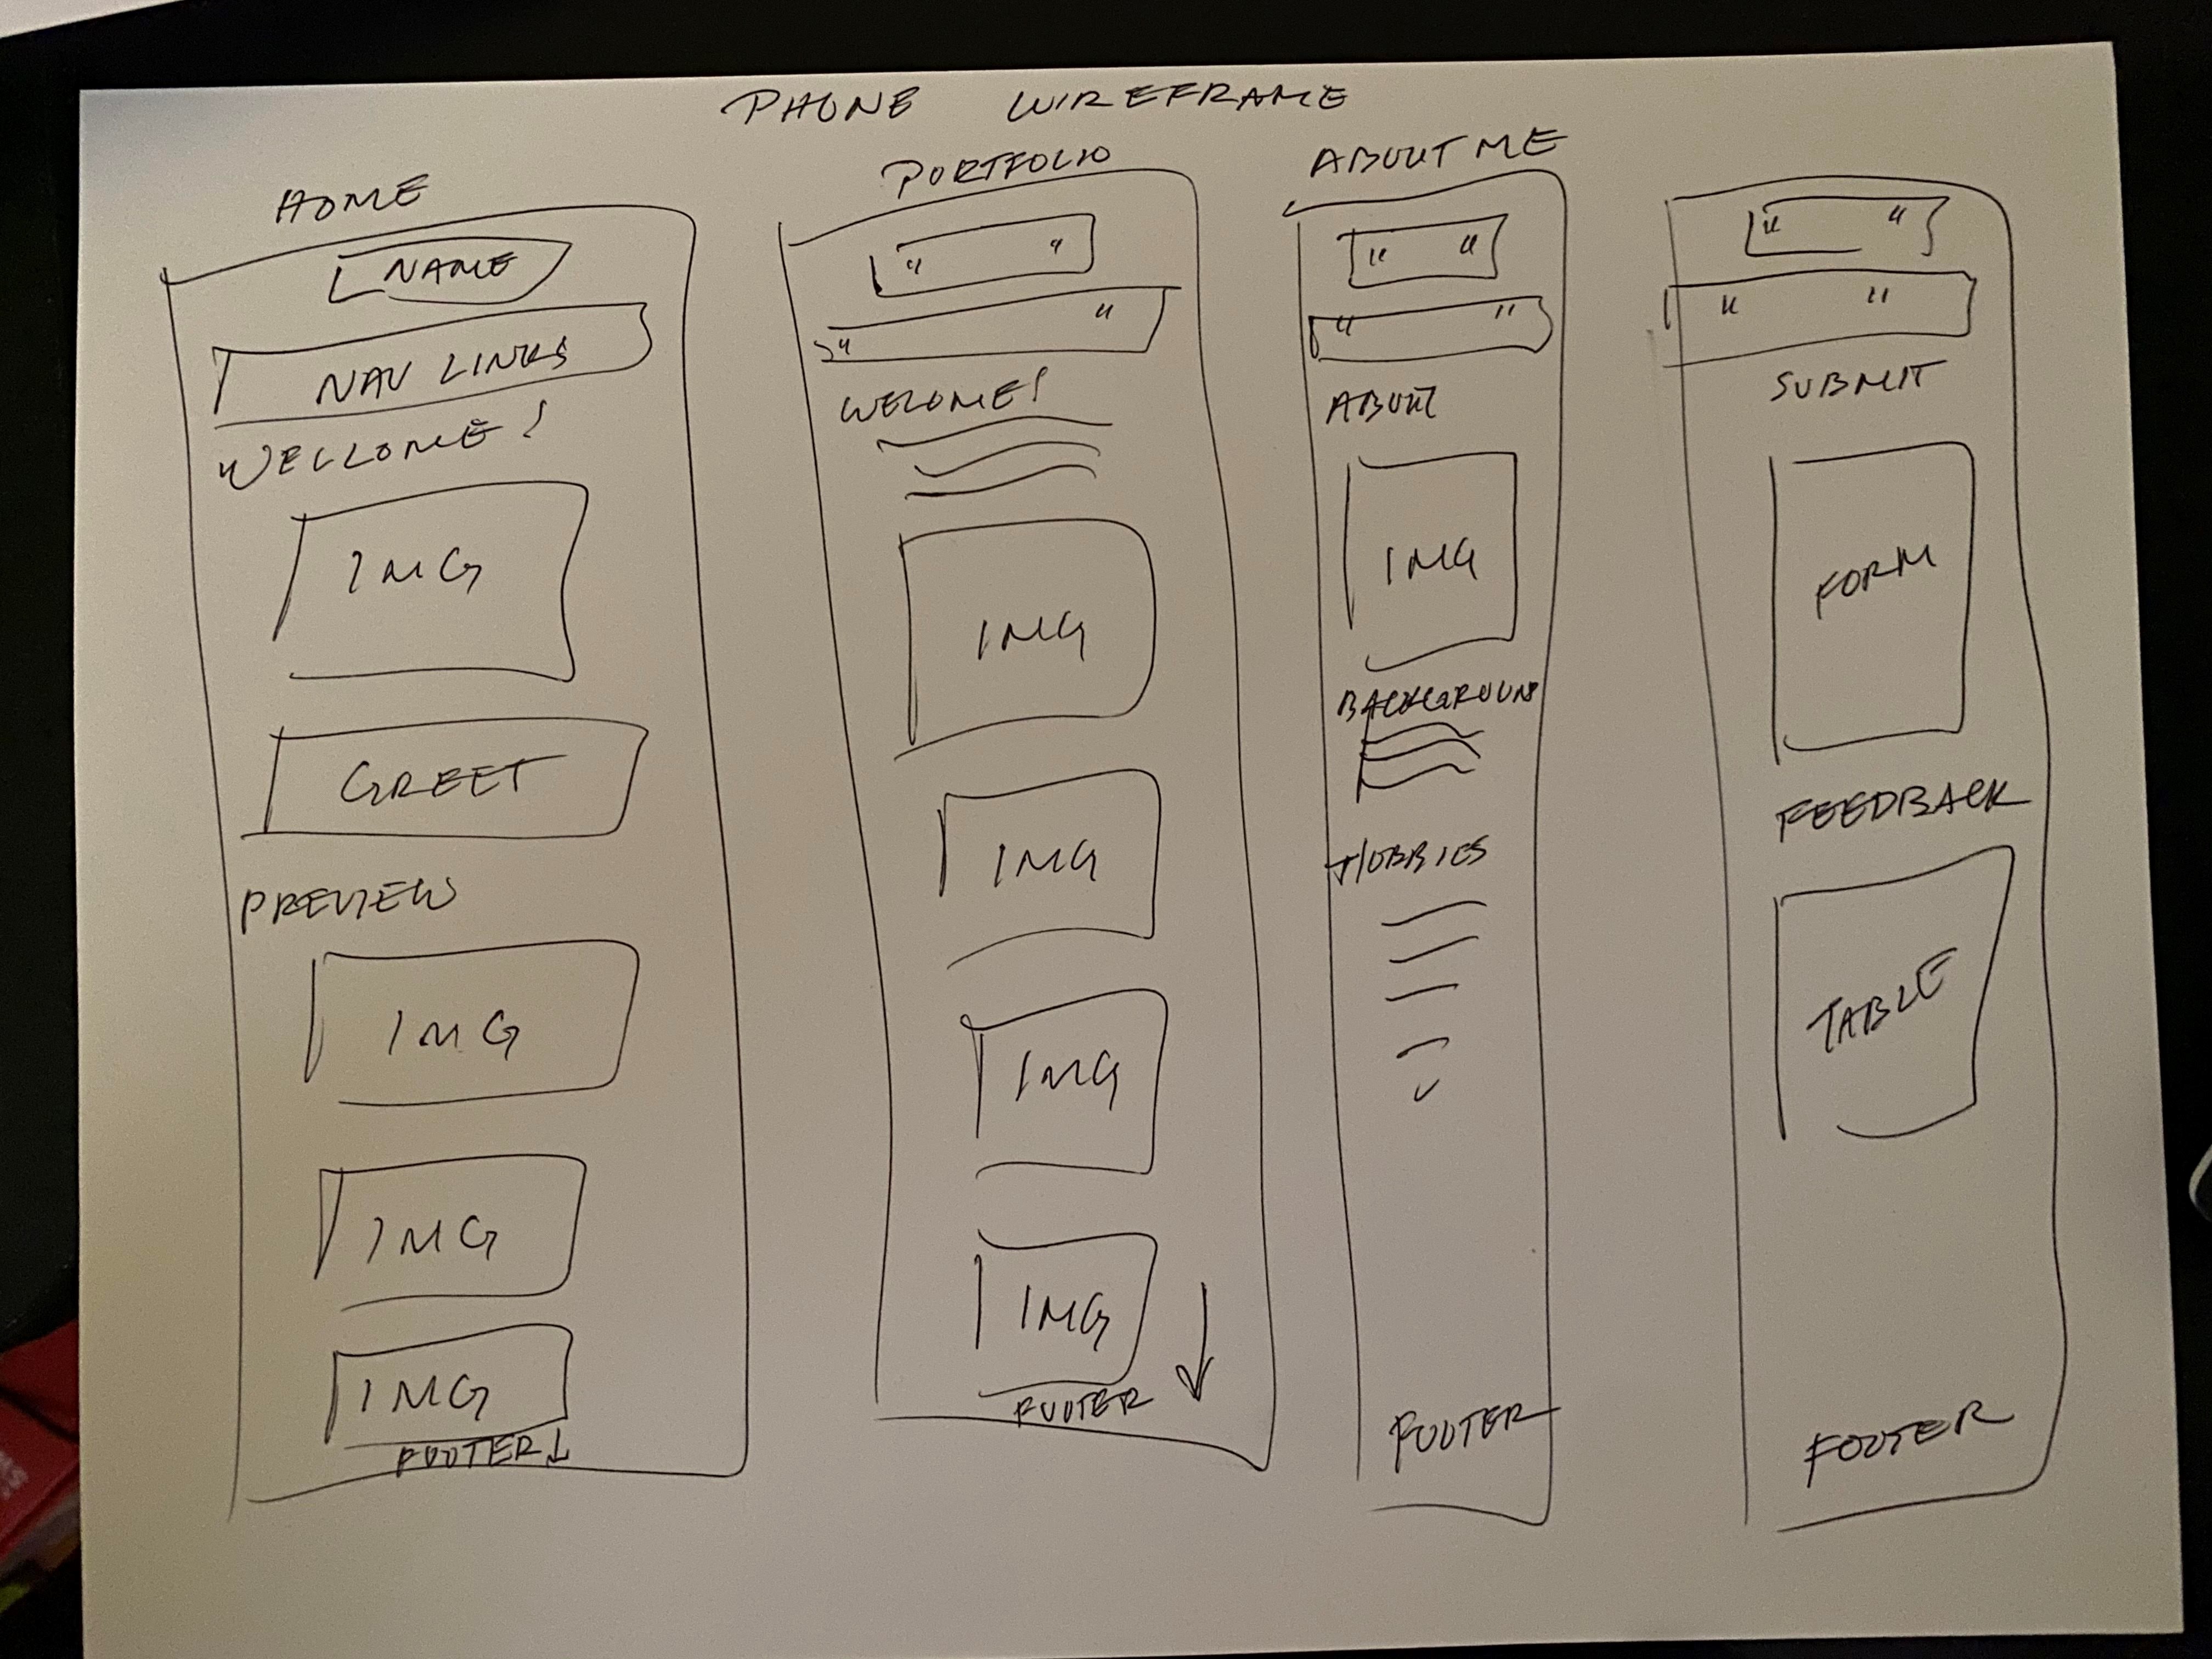 PHONE WIREFRAME
HOME
NAME
NAV LINKS
WELCOME!
IMG
GREET
PREVIEW
IMG
IMG
IMG
FOOTER ↓
PORTFOLIO
" "
" "
WELOME!
IMG
IMG
IMG
IMG
FOOTER
ABOUT ME
" "
" "
ABOUT
IMG
BACKGROUND
HOBBIES
FOOTER
" "
" "
SUBMIT
FORM
FEEDBACK
TABLE
FOOTER